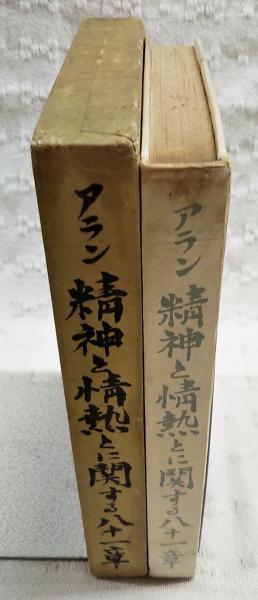 アラン 精神と情熱とに関する八十一章
アラン 精神と情熱とに関する八十一章